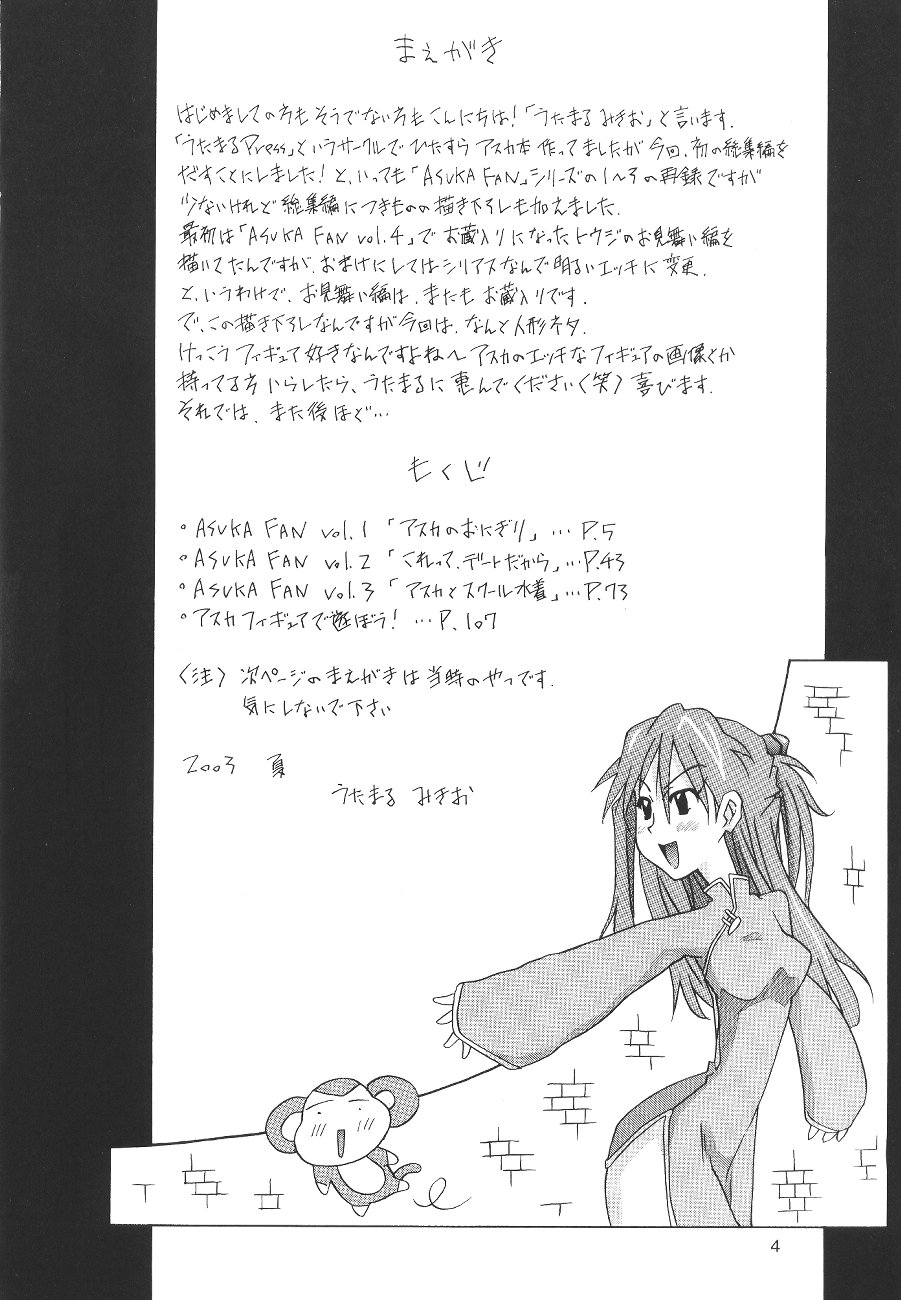 まえがき
はじめましての方もそうでない方もこんにちは!「うたまる みきお」と言います.
「うたまるPress」というサークルでひたすら アスカ本 作ってましたが 今回、初の総集編を
だすことにしました!と、いっても「ASUKA FAN」シリーズの1〜3の再録ですが
少ないけれど 総集編につきものの描き下ろしも加えました.
最初は「ASUKA FAN vol.4」で お蔵入りになったトウジのお見舞い編を
描いてたんですが、おまけにしてはシリアスなんで明るいエッチに変更.
と、いうわけで、お見舞い編は、またも お蔵入りです.
で、この描き下ろしなんですが今回は、なんと人形ネタ.
けっこうフィギュア好きなんですよね〜 アスカのエッチなフィギュアの画像とか
持ってる方 いらしたら、うたまるに 恵んでください(笑)喜びます.
それでは、また後ほど…
もくじ
○ASUKA FAN vol.1 「アスカのおにぎり」…P.5
○ASUKA FAN vol.2 「これって、デートだから」…P.43
○ASUKA FAN vol.3 「アスカとスクール水着」…P.73
○アスカフィギュアで遊ぼう! …P.107
〈注〉次ページのまえがきは当時のやつです.
気にしないで下さい
2003 夏
うたまる みきお
4